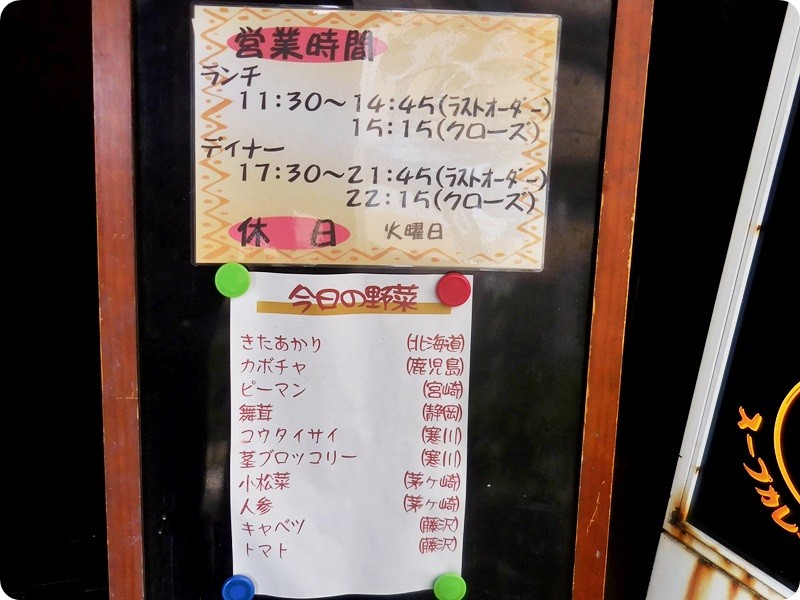 営業時間
ランチ
11:30～14:45(ラストオーダー)
15:15(クローズ)
ディナー
17:30～21:45(ラストオーダー)
22:15(クローズ)
休日 火曜日
今日の野菜
きたあかり (北海道)
カボチャ (鹿児島)
ピーマン (宮崎)
舞茸 (静岡)
コウタイサイ (寒川)
茎ブロッコリー (寒川)
小松菜 (茅ヶ崎)
人参 (茅ヶ崎)
キャベツ (藤沢)
トマト (藤沢)
スープカレー